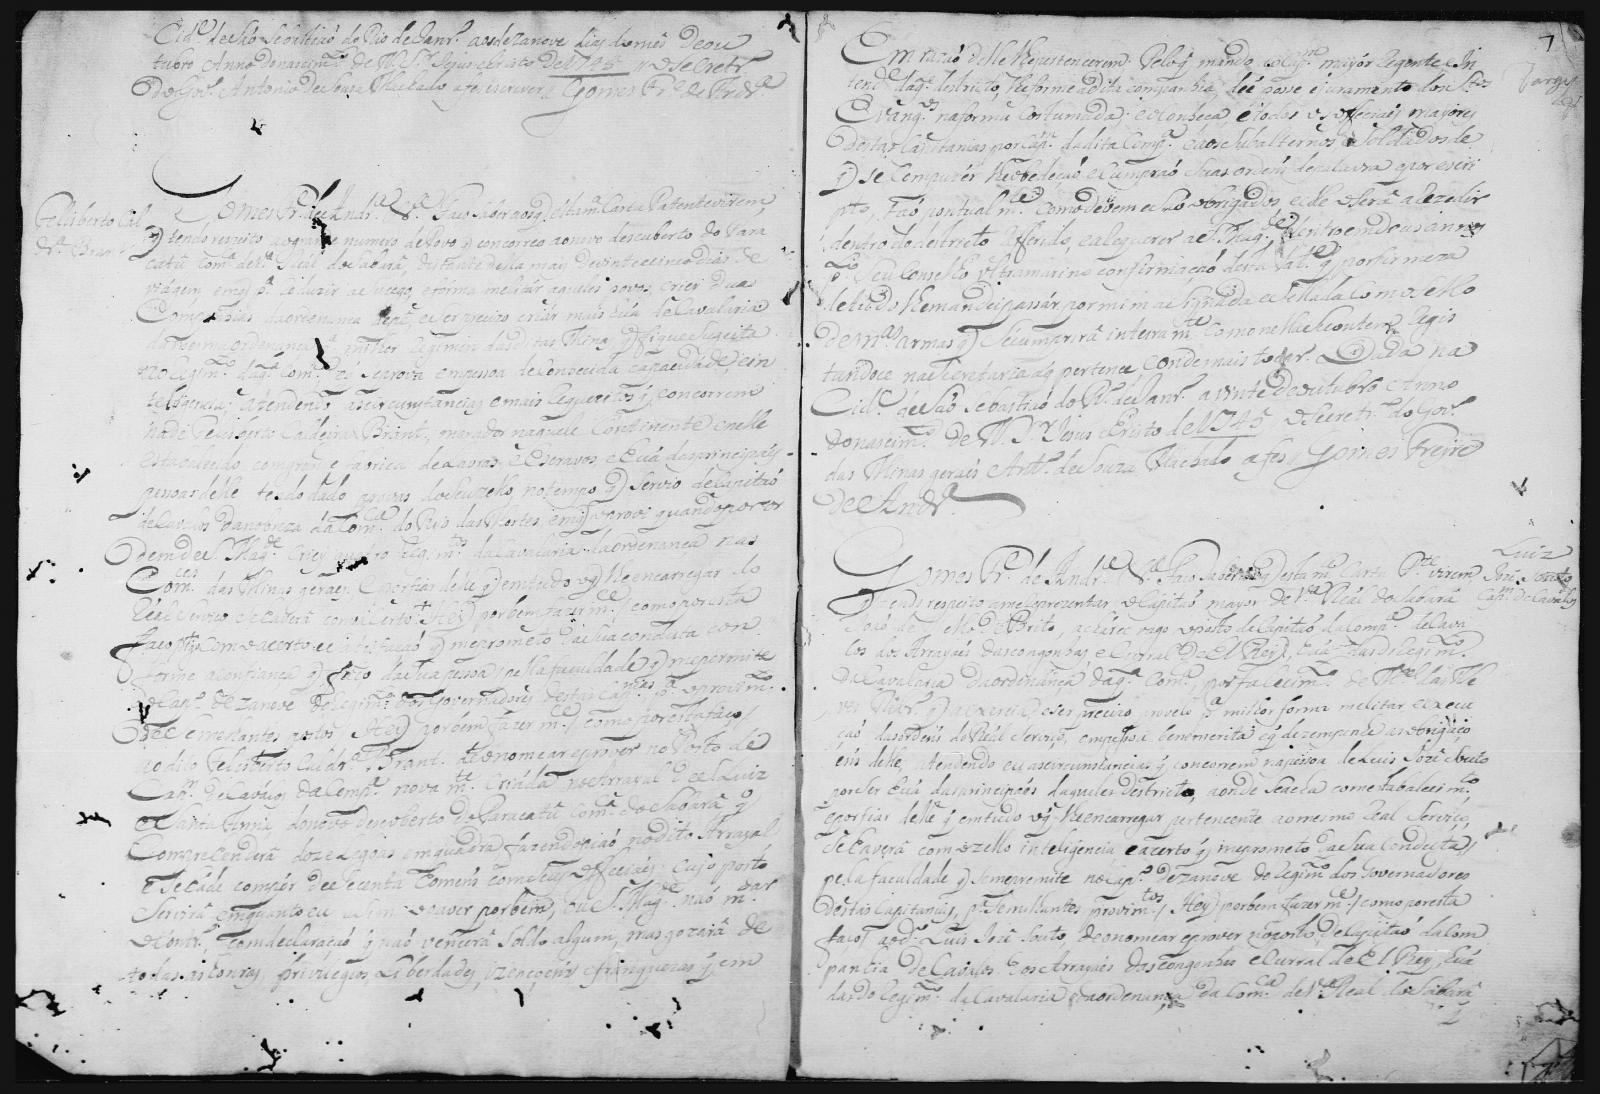 Cid.e de São Sebastiaó do Rio de Janr.o aos dezanove dias do mês de ou
tubro Anno do nascim.to de N. S.r Jesus christo de 1745 // o Secretr.o
do Gov.o Antonio de Souza Machado a fes escrever // Gomes Fr.e de Andr.e
Felisberto Cal
dr.a Brant
Gomes Fr.e de Andr.e &.e Faço saber aos q̃ esta m.a Carta Patente virem,
q̃ tendo respeito ao grande numero de Povo q̃ concorreo ao novo descuberto do Para
catú Com.ca de V.a Real do Sabará, distante della mais de vinte e cinco dias de
viágem e p.a reduzir a socego e forma melitár aqueles povos, criei duas
Companhias da ordenança de pé, e ser precizo criár mais húa de Cavalaria
da mesma ordenança p.a milhor regimen das ditas Minas q̃ fique sugeita
ao Regim.to daq.la Com.ca e se prova em pessoa de conhecida capacidade, e in
teligencia; atendendo as circunstancias e mais requezitos q̃ concorrem
na de Felisberto Caldeira Brant, morador naquele Continente e nelle
estabalecido com grande fabrica de Lavras, e Escravos, e húa das principáes
pessoas delle tendo dado provas do seu zello, no tempo q̃ servio de Capitaó
de Cavalos da nobreza da Com.ca do Rio das Mortes, em q̃ o provi quando por or
dem de S. Mag.e criey quatro Regim.tos da Cavalaria da ordenança nas
Com.cas das Minas geraes, e confiar delle q̃ em tudo o q̃ lhe encarregar do
Real serviço se haverá com o acerto, Hey por bem fazer m.ce / como por esta
faço / com o acerto, e satisfaçaó q̃ me prometo da sua conduta con
forme a confiança q̃ faço da sua pessoa, pella faculdade q̃ me permite
o Cap.o dezanove do Regim.to dos Governadores destas Cap.nias p.a o provim.to
de semelhantes postos Hey por bem fazer m.ce / como por esta faço /
ao dito Felisberto Caldr.a Brant. de o nomear e prover no Posto de
Cap.m de Cavalos da Comp.a nova m.te criáda no Arrayal de S. Luiz
e Santa Anna, do novo descoberto do Paracatú Com.ca do Sabará q̃
comprehenderá doze legoas em quadra fazendo piaó no dito Arrayal
e se há de compór de secenta homens com seus officiáes, cujo posto
servirá emquanto eu o asim o ouver por bem, ou S. Mag.e naó m.dar
o contr.o, com declaraçaó q̃ naó vencerá soldo algum, mas gozará de
todas as honras, privilegios, Liberdades, izençoens e franquezas q̃ em
7
Em razaó delle lhe pertencerem. Pelo q̃ mando ao Cap.m mayór Regente e In
tend.e daq.le destricto, lhe forme a dita companhia, dé posse e juramento dos S.tos
Evang.os na forma costumada; e conheça, e todos os officiais mayores
destas Capitanias por Cap.m da dita Comp.a e aos subalternos e soldados de
q̃ se compuzér lhe obedeçaó e cumpraó suas ordens de palavra e por escri
pto, taó pontualm.te como devem e saó obrigados, e elle o será a rezedir
dentro do destricto referido, e a requerer a S. Mag.e dentro em dous annos
p.lo seu conselho ultramarino confirmaçaó desta Pat.e q̃ por firmeza
de tudo lhe mandei passár por mim asignada e sellada com o sello
de m.as armas q̃ se cumprirá inteiram.te como nella se contem, regis
tandoce na secretaria a q̃ pertence e onde mais tocar. Dada na
Cid.e de Saó Sebastiaó do R.o de Janr.o a vinte de outubro Anno
do nascim.to de N. S.r Jesus Christo de 1745 o Secretr.o do Gov.o
das Minas geraes Ant.o de Souza Machado a fes // Gomes Freire
de Andr.e
Luiz
José Souto
Cap.m de Cavalos
Gomes Fr.e de Andr.e &.e Faço saber aos q̃ esta m.a Carta P.te virem
q̃ tendo respeito a me reprezentar o Capitaó mayor de V.a Real do Sabará
Joaó de Mello e Brito, achárce vago o posto de Capitaó da Comp.a de Cava
los dos Arrayáes das congonhas e Curral de El Rey, húa das do Regim.to
de Cavalaria da ordenança daq.la Com.ca, por falecim.to de M.el da Sil
q̃ a exercia, e ser precizo provelo p.a milhor forma melitar e execu
çaó das ordens do Real Serviço, em pessoa benemerita e q̃ dezempenhe as obrigaço
ens delle; atendendo eu as circunstancias q̃ concorrem na pessoa de Luis José Souto
por ser húa das principáes daquelle destricto, aonde se acha com estabalecim.to
e confiar delle q̃ em tudo o q̃ lhe encarregar pertencente ao mesmo Real serviço,
se haverá com o zello inteligencia e acerto q̃ me prometo da sua conducta
pela faculdade q̃ se me premite no Cap.o dezanove do Regim.to dos Governadores
destas Capitanias, p.a semelhantes provim.tos / Hey por bem fazer m.ce / como por esta
faço / ao d.o Luis José Souto de o nomear e prover no posto de Capitaó da Com
panhia de Cavalos dos Arrayáes das congonhas e Curral de El Rey, húa
das do Regim.to da Cavalaria da ordenança da Com.ca de V.a Real do Sabará